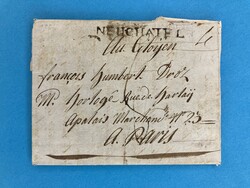 NEUCHATEL
Au Citoyen
françois humbert Droz
M. horlogé Rue de harlaÿ
apalais Marchand N° 23
A Paris